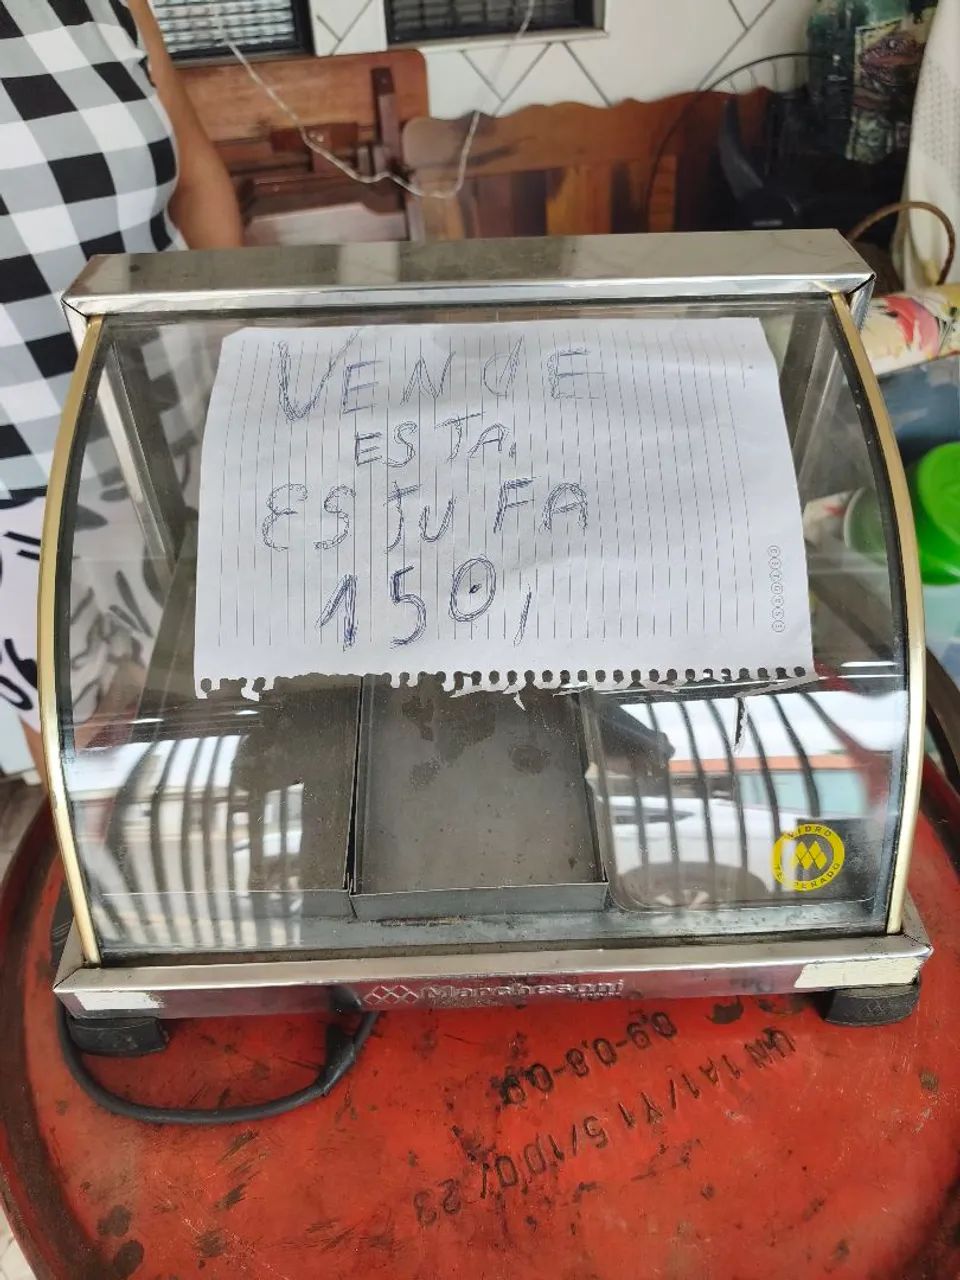 VENDE
ESTA.
ESTUFA
150,
VIDRO
TEMPERADO
Marchesoni
0,9-0,8-0,9
UN 1A1/Y1.5/100/
23